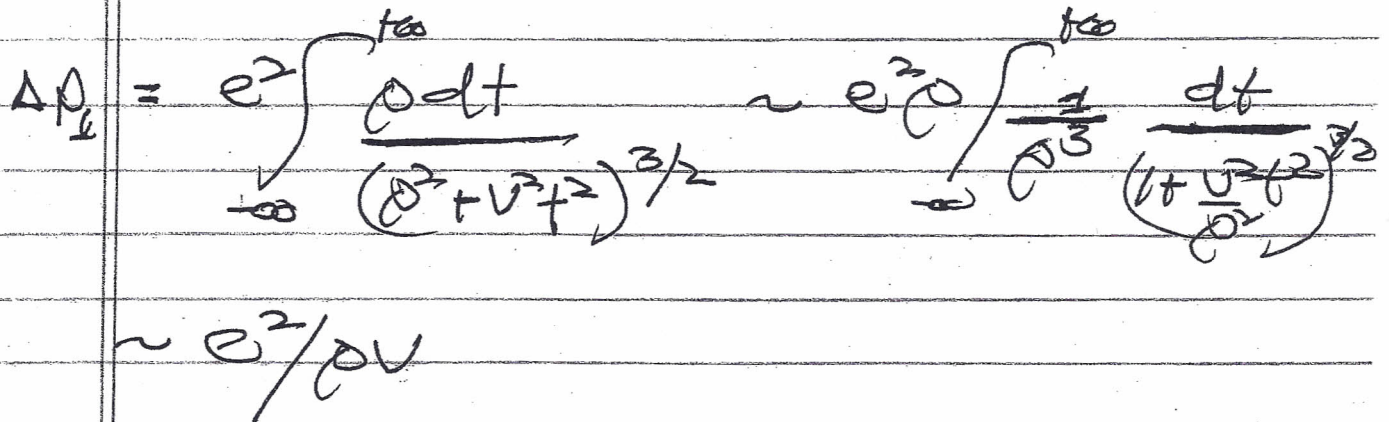 Δp⊥ = e² ∫_{-∞}^{+∞} ρdt / (ρ² + v²t²)^{3/2} ~ e²ρ ∫_{-∞}^{+∞} 1/ρ³ dt / (1 + v²t²/ρ²)^{3/2}
~ e²/ρv